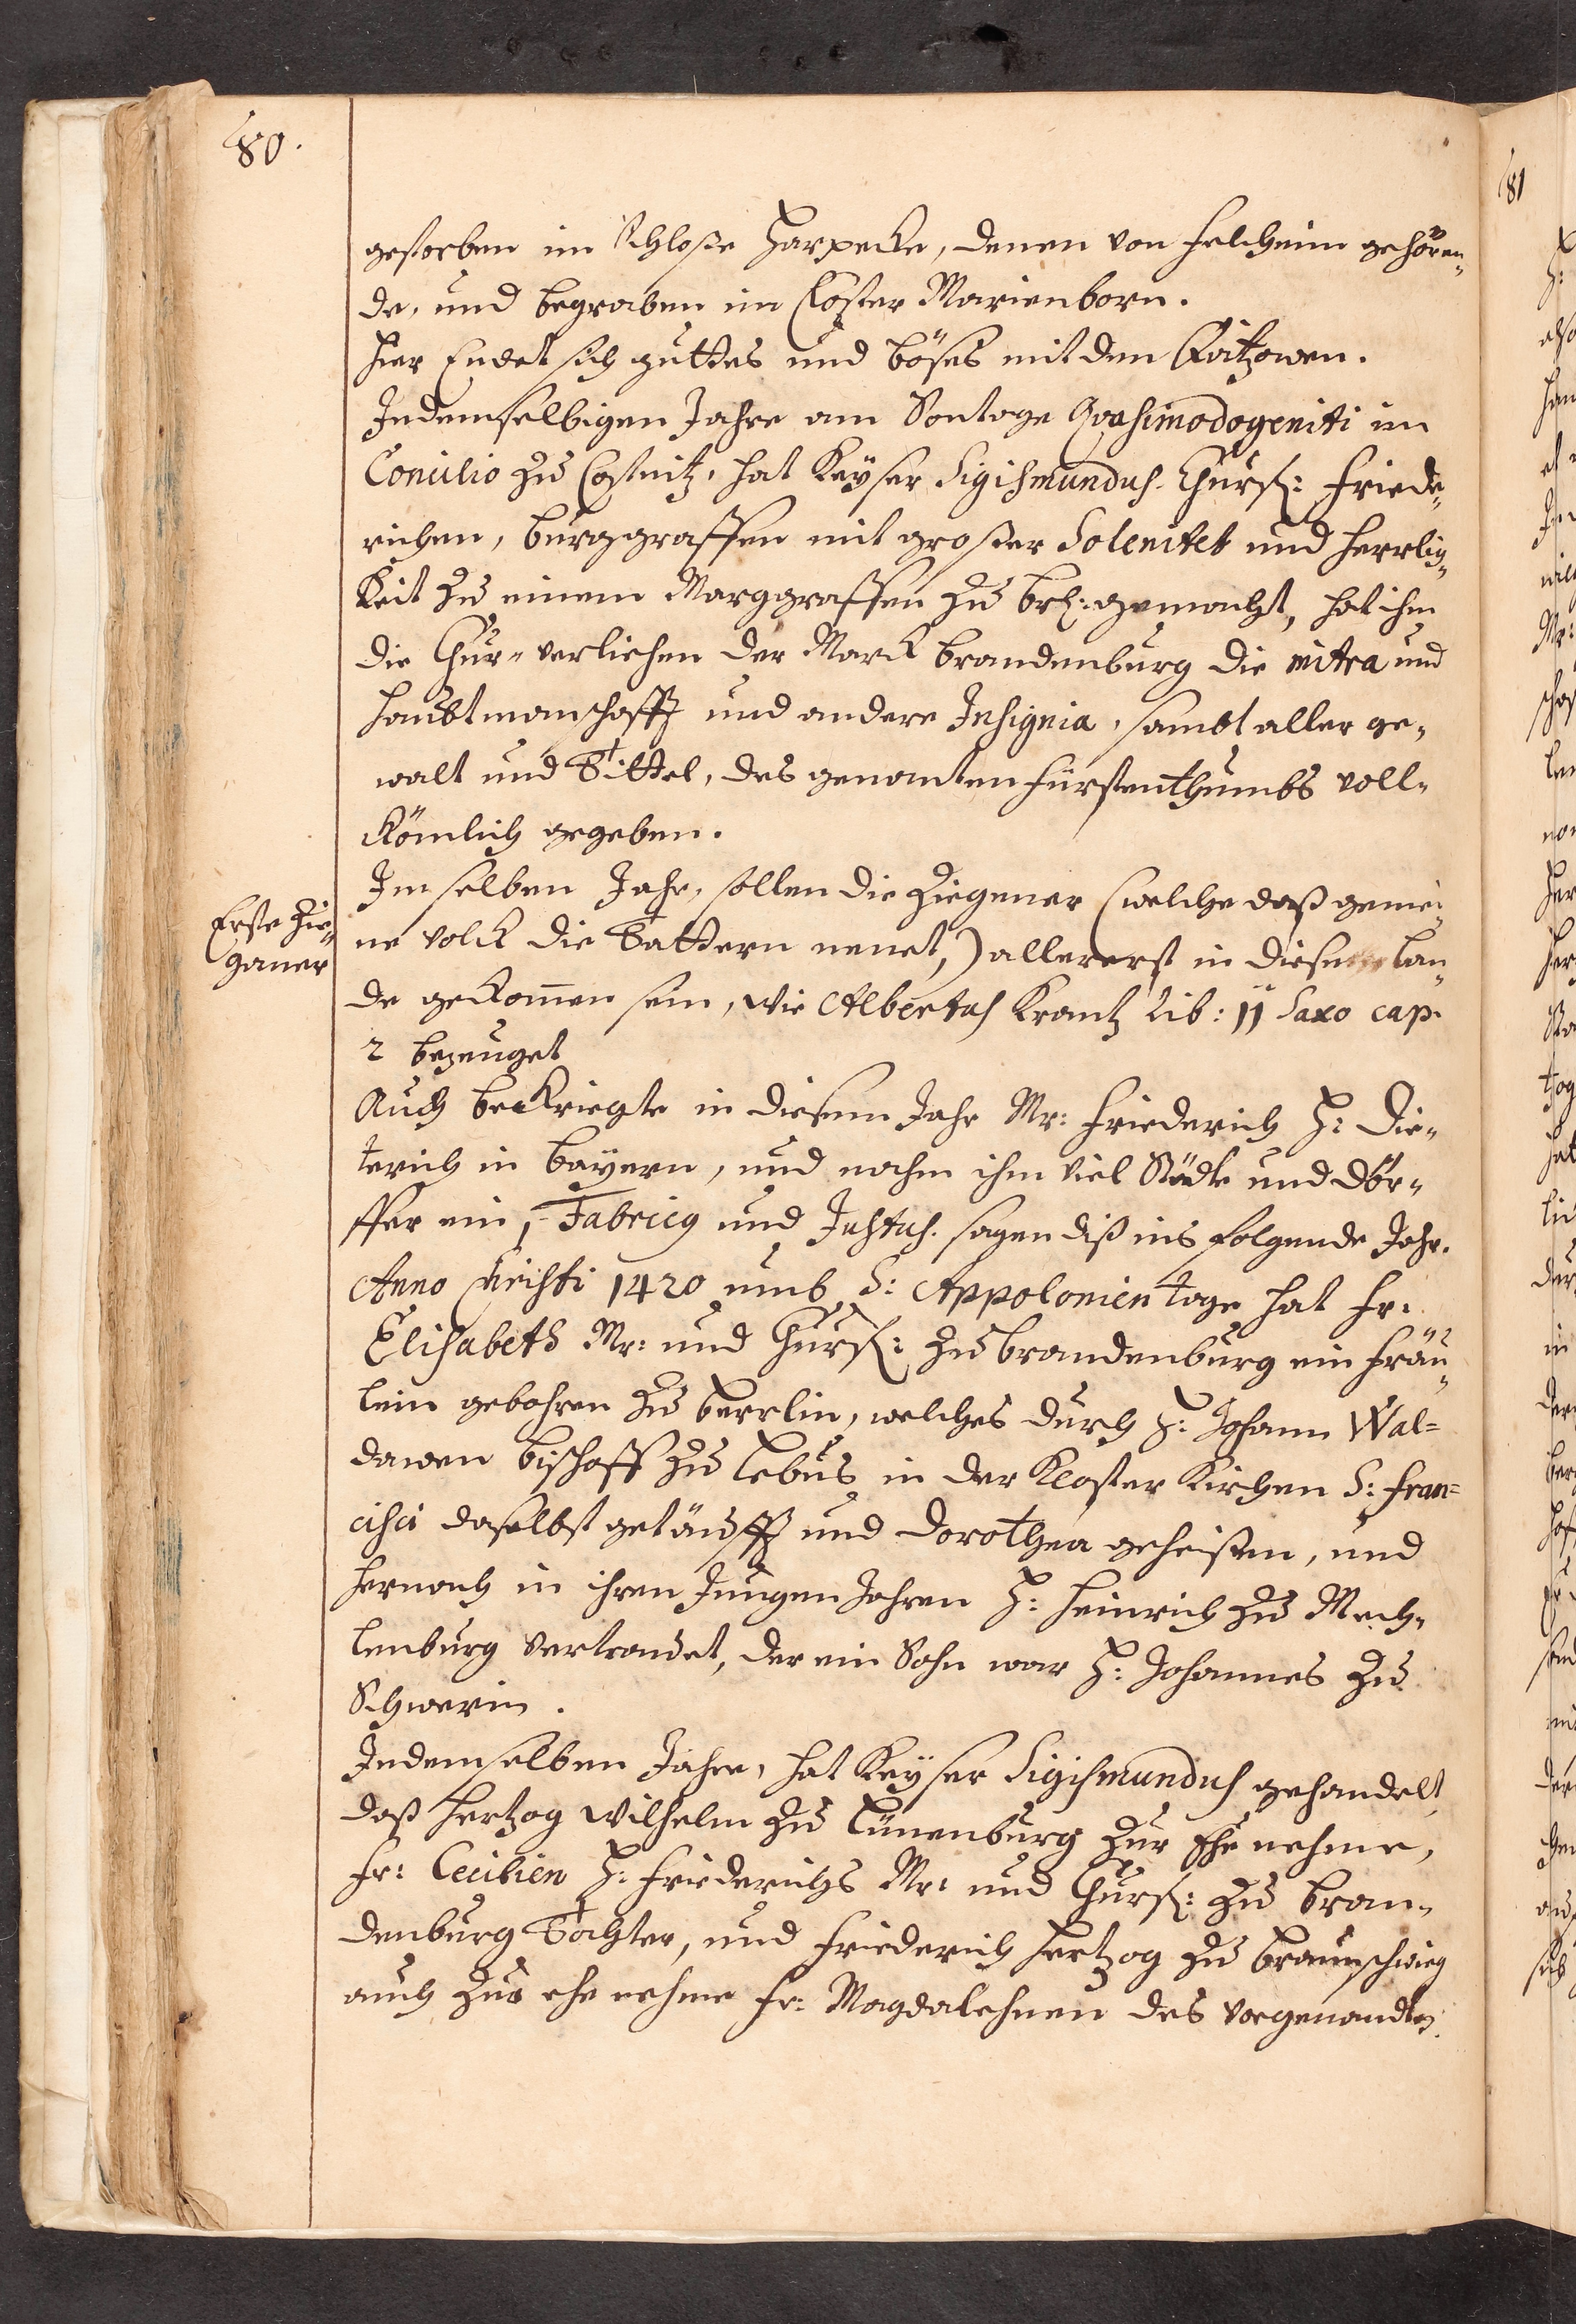 80.
gestorben im Schloße Harpecke, denen von Feltheim gehören¬
de, und begraben im Closter Marienborn.
Hier Endet sich guttes und böses mit den Qvitzowen.
Indemselbigen Jahre am Sontage Qvasimodogeniti im
Concilio zu Costnitz, hat Keyser Sigismundus Churf: Friede¬
richen, Burggraffen mit großer Solenitet und Herrlig¬
keit zu einem Marggraffen zu Br: gemacht, hat ihm
die Chur-verliehen der Marck Brandenburg die mitra und
Haubtmanschafft und andere Insignia, sambt aller ge¬
walt und Tittel, des genanten Fürstenthumbs voll¬
kömlich gegeben.
Im selben Jahr, sollen die Ziegener (welche daß gemei¬
ne Volck die Tattern nenet,) allererst in diesem Lan¬
de gekommen sein, wie Albertus Krantz Lib: 11 Saxo cap.
2 bezeuget
Erste Zie¬
gauner
Auch bekriegte in diesem Jahr Mr: Friederich H: Die¬
terich in Bayern, und nahm ihm viel Städte und Dör¬
ffer ein, Fabricig und Justus. sagen diß ins folgende Jahr.
Anno Christi 1420 umb S: Appolonien tage hat Fr:
Elisabeth Mr: und Churf: zu Brandenburg ein Fräu¬
lein gebohren zu Berrlin, welches durch H: Johann Wal=
dawen Bischoff zu Lebus in der Kloster Kirchen S: Fran=
cisci daselbst getäufft und Dorothea geheißen, und
hernach in ihren Jungen Jahren H: Heinrich zu Mech¬
lenburg vertrauet, der ein Sohn war H: Johannes zu
Schwerin.
Indemselben Jahre, hat Keyser Sigismundus gehandelt,
daß Hertzog Wilhelm zu Lünenburg zur Ehe nehme,
Fr: Cecilien H: Friederichs Mr: und Churf: zu Bran¬
denburg Tochter, und Friederich Hertzog zu Braunschwieg
auch zur ehe nehme Fr: Magdalehnen des vorgenandten
81